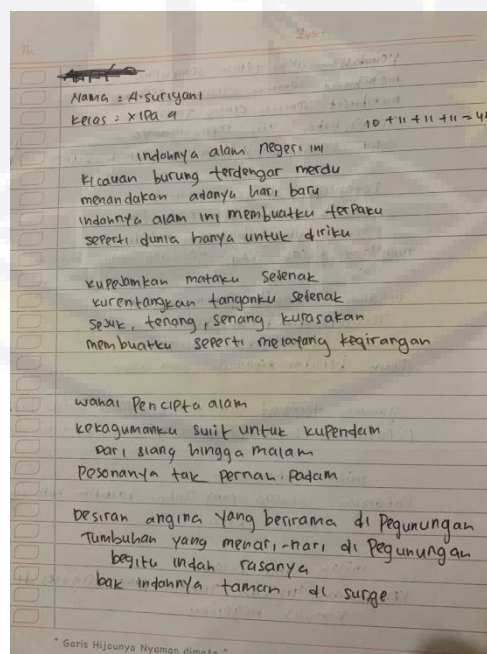 No.
Date:
Nama : A. suriyani
Kelas : XIPA 4
10 + 11 + 11 + 11 = 4
indahnya alam negeri ini
Kicauan burung terdengar merdu
menandakan adanya hari baru
indahnya alam ini membuatku terpaku
seperti dunia hanya untuk diriku
kupejamkan mataku sejenak
kurentangkan tanganku sejenak
sejuk, tenang, senang, kurasakan
membuatku seperti melayang kegirangan
wahai Pencipta alam
kekagumanku sulit untuk kupendam
Dari siang hingga malam
Pesonanya tak pernah padam
Desiran angina yang berirama di Pegunungan
Tumbuhan yang menari-nari di Pegunungan
begitu indah rasanya
bak indahnya taman di surge
" Garis Hijaunya Nyaman dimata "